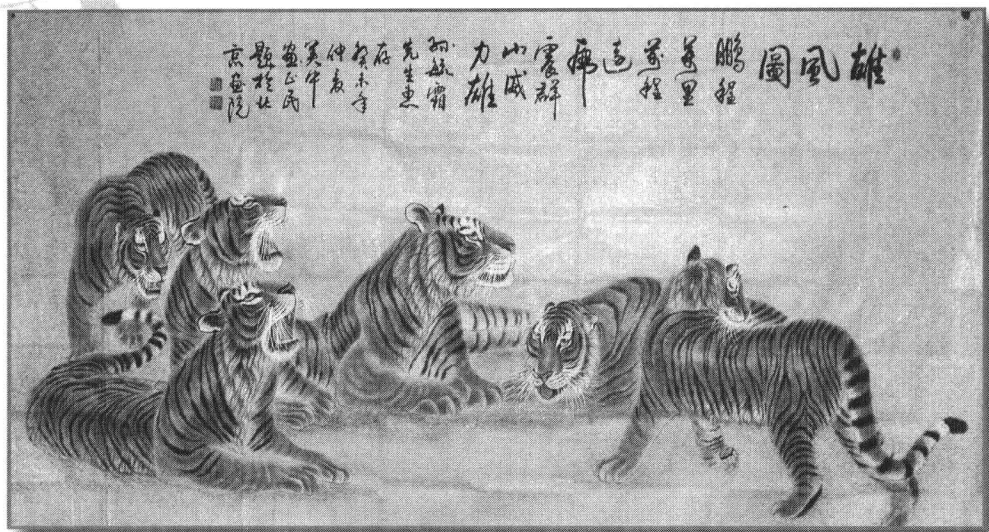 雄風圖
鵬程
萬里
萬程
遠
虎
震群
山威
力雄
孙毓霜
先生惠
存
癸未年
仲夏
美中
畫正民
題於北
京畫院